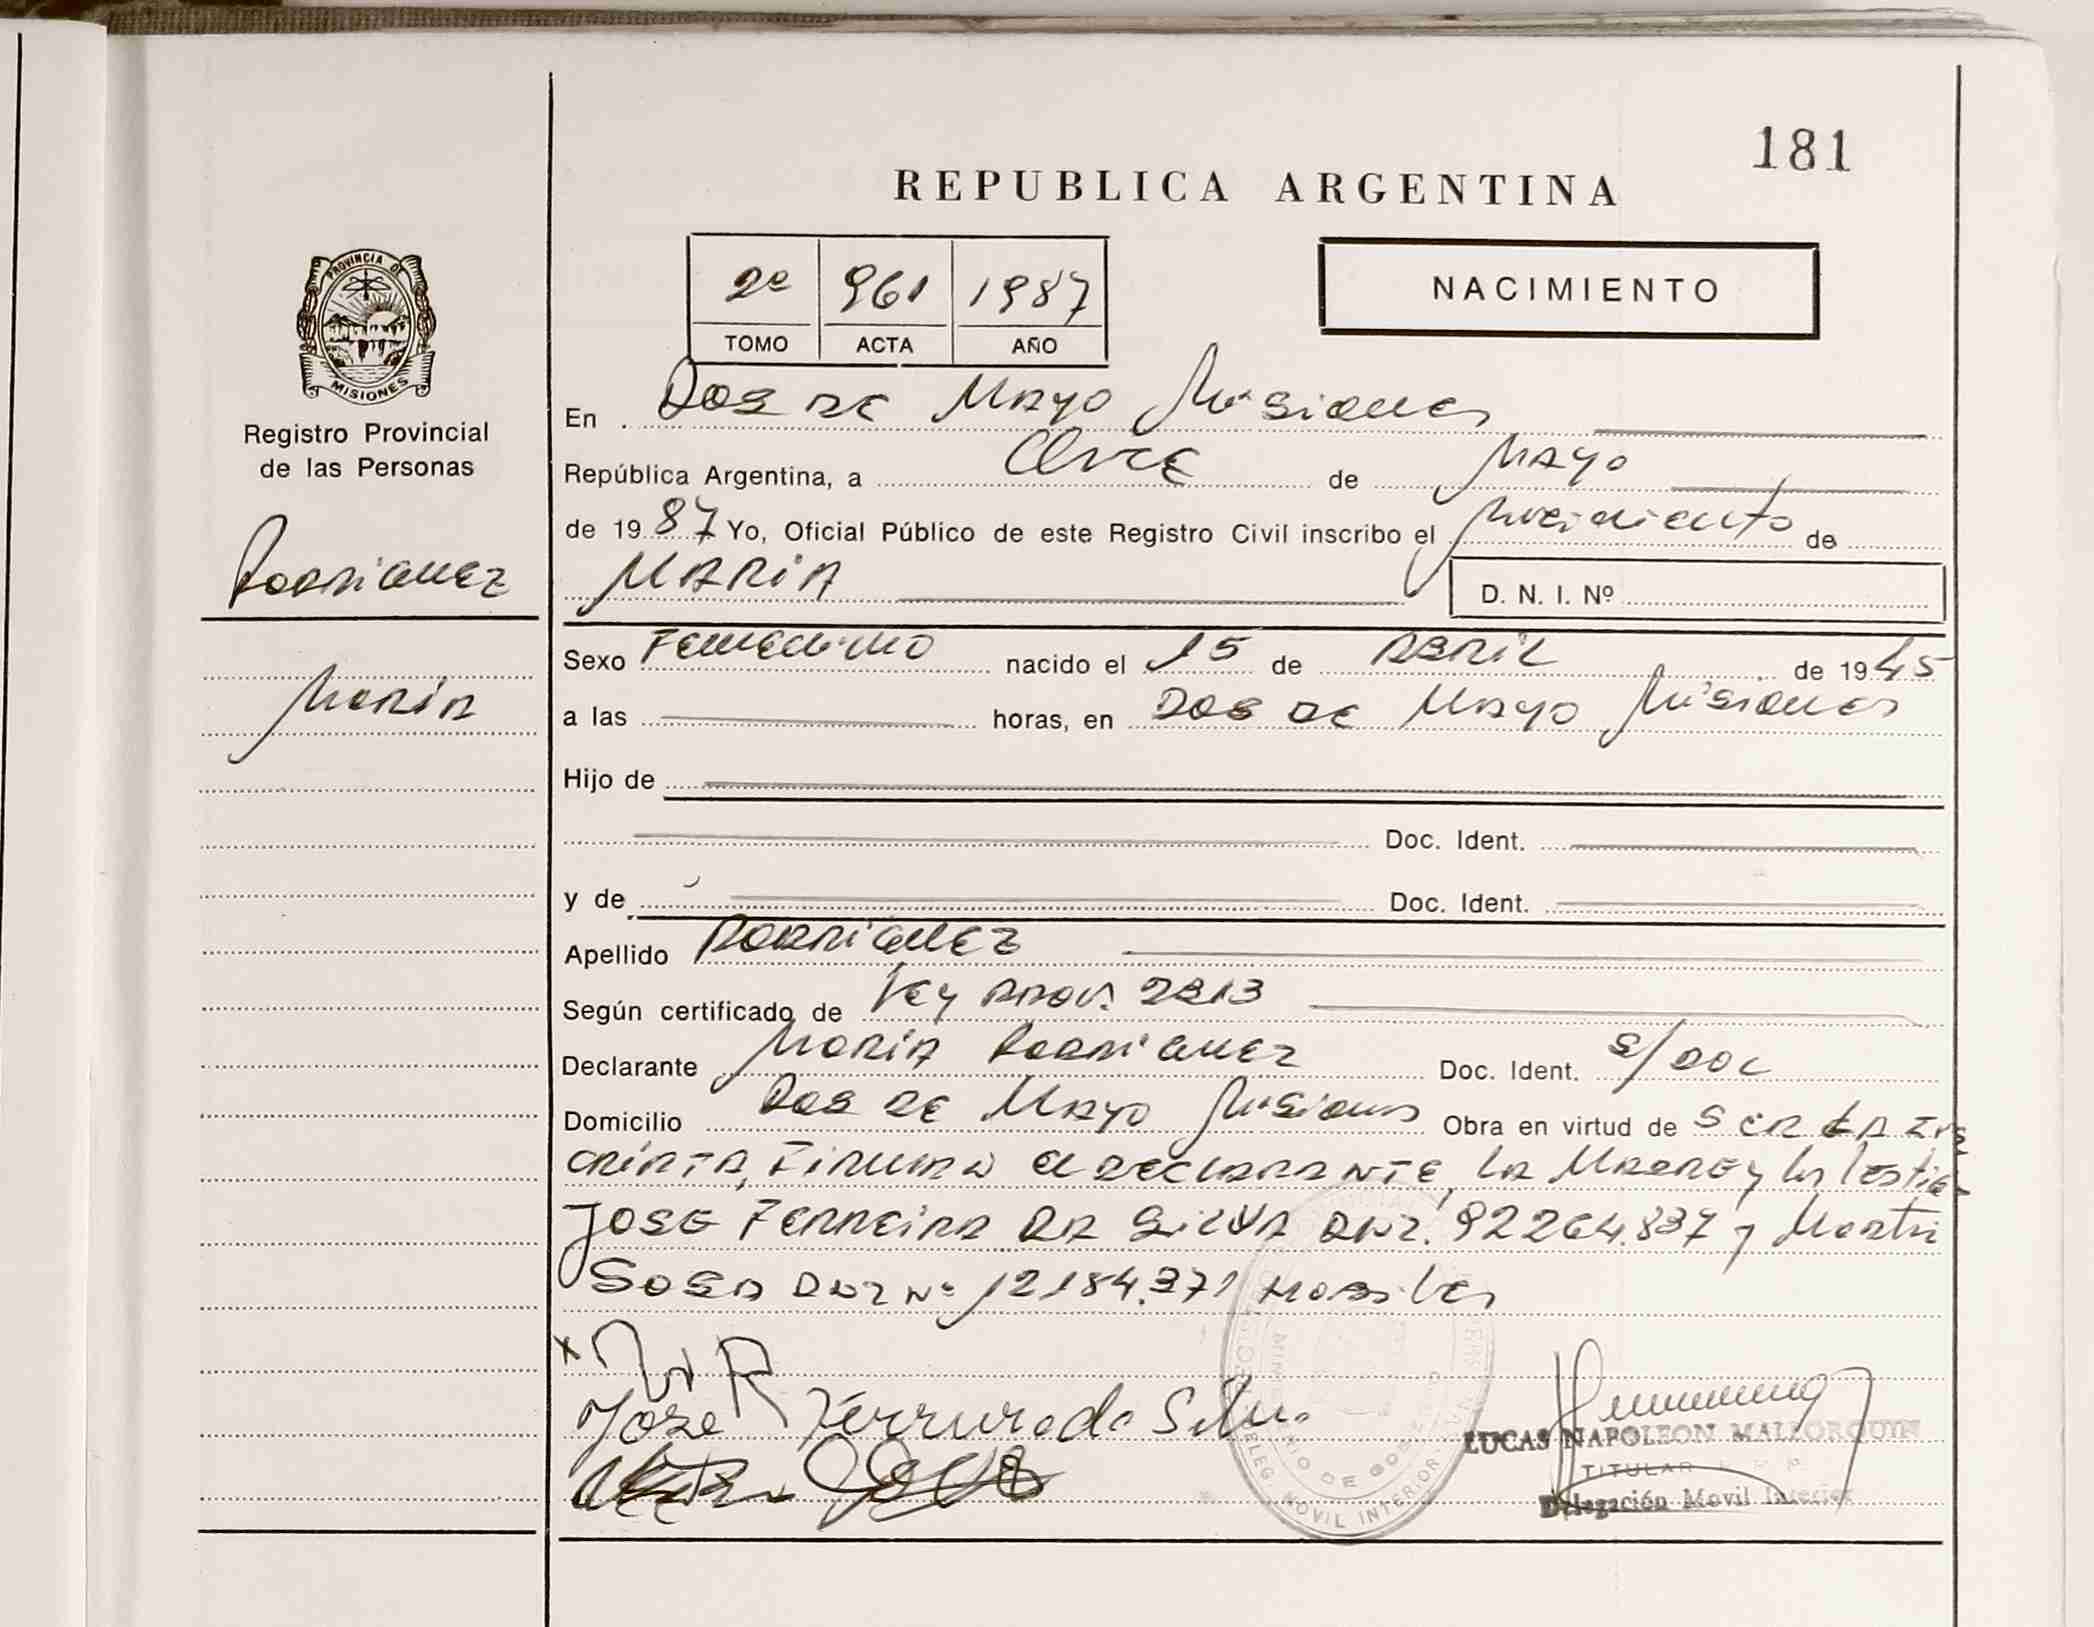 181
REPUBLICA ARGENTINA
2º 961 1987
TOMO ACTA AÑO
NACIMIENTO
PROVINCIA DE
MISIONES
Registro Provincial
de las Personas
Rodriguez
Maria
En Dos de Mayo Misiones
República Argentina, a Once de Mayo
de 1987 Yo, Oficial Público de este Registro Civil inscribo el Nacimiento de
MARIA
D. N. I. Nº
Sexo Femenino nacido el 15 de ABRIL de 1945
a las horas, en Dos de Mayo Misiones
Hijo de
Doc. Ident.
y de Doc. Ident.
Apellido Rodriguez
Según certificado de Ley Prov. 2213
Declarante Maria Rodriguez Doc. Ident. S/DOC
Domicilio Dos de Mayo Misiones Obra en virtud de Ser la Ins
cripta, Firman el declarante, la Madre y los Testig
Jose Ferreira Da Silva DNI. 92264.837 y Martin
Sosa DNI Nº 12184.371 Habiles
x M R
Jose Ferrura da Silva
LUCAS NAPOLEON MALLORQUIN
TITULAR
Delegación Movil Interior
DELEG. MOVIL INTERIOR